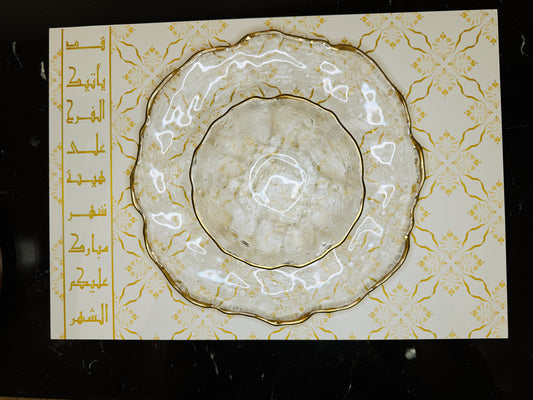 قد
يأتيك
الفرج
على
هيئة
شهر
مبارك
عليكم
الشهر